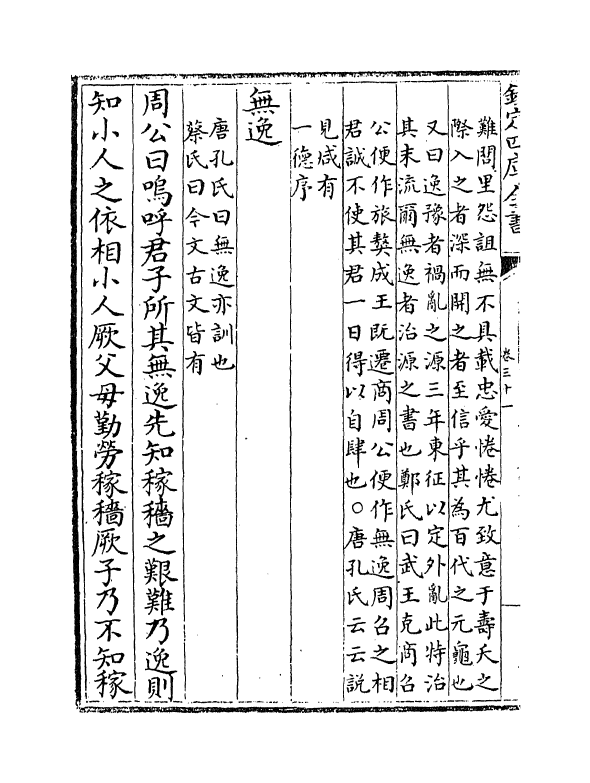 欽定四庫全書
卷三十一
難閭里怨詛無不具載忠愛惓惓尤致意于壽夭之
際入之者深而開之者至信乎其為百代之元龜也
又曰逸豫者禍亂之源三年東征以定外亂此特治
其末流爾無逸者治源之書也鄭氏曰武王克商召
公便作旅獒成王既遷商周公便作無逸周召之相
君誠不使其君一日得以自肆也○唐孔氏云云説
見咸有
一德序
無逸
唐孔氏曰無逸亦訓也
蔡氏曰今文古文皆有
周公曰嗚呼君子所其無逸先知稼穡之艱難乃逸則
知小人之依相小人厥父母勤勞稼穡厥子乃不知稼